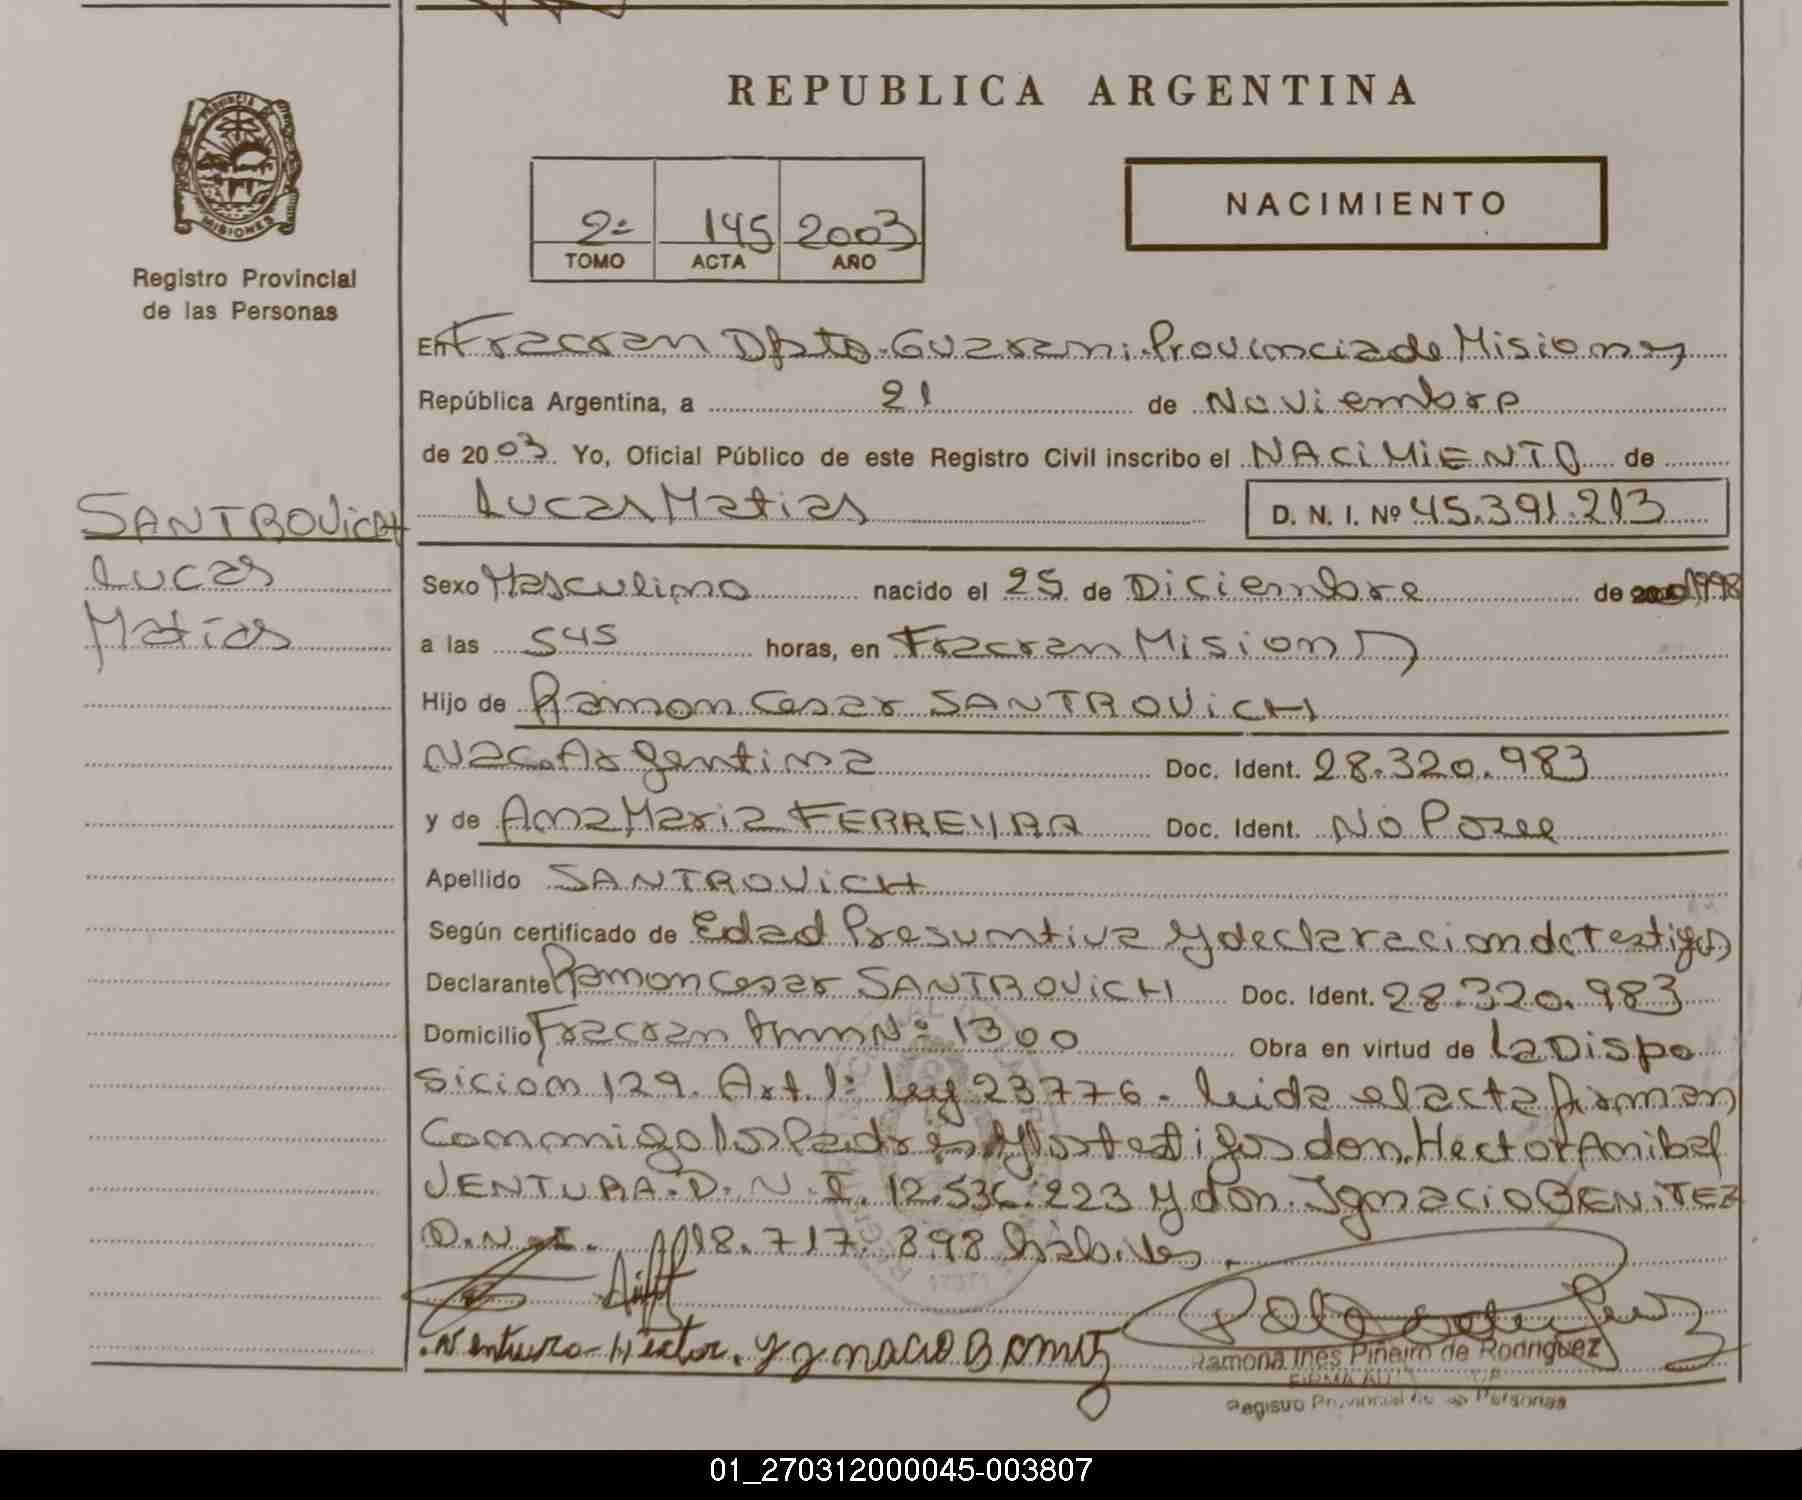 REPUBLICA ARGENTINA
PROVINCIA DE
MISIONES
Registro Provincial
de las Personas
NACIMIENTO
2º 145 2003
TOMO ACTA AÑO
En Fracran Dpto. Guarani. Provincia de Misiones
República Argentina, a 21 de Noviembre
de 2003 Yo, Oficial Público de este Registro Civil inscribo el NACIMIENTO de
Lucas Matias D. N. I. Nº 45.391.213
SANTROVICH
Lucas
Matias
Sexo Masculino nacido el 25 de Diciembre de 1998
a las 545 horas, en Fracran Misiones
Hijo de Ramon Cesar SANTROVICH
Nac. Argentina Doc. Ident. 28.320.983
y de Ana Maria FERREYRA Doc. Ident. No Posee
Apellido SANTROVICH
Según certificado de Edad Presuntiva y declaracion de Testigos
Declarante Ramon Cesar SANTROVICH Doc. Ident. 28.320.983
Domicilio Fracran Nº 1300 Obra en virtud de la Dispo
sicion 129. Art. 1: Ley 23776. leida el acta firman
Conmigo los Padres y los testigos don. Hector Anibal
VENTURA. D. N. I. 12.536.223 y don. Ignacio BENITEZ
D.N.I. 18.717.898 hábiles.
Ventura Hector. Ygnacio
Ramona Ines Piñeiro de Rodriguez
Registro Provincial de las Personas
01_270312000045-003807